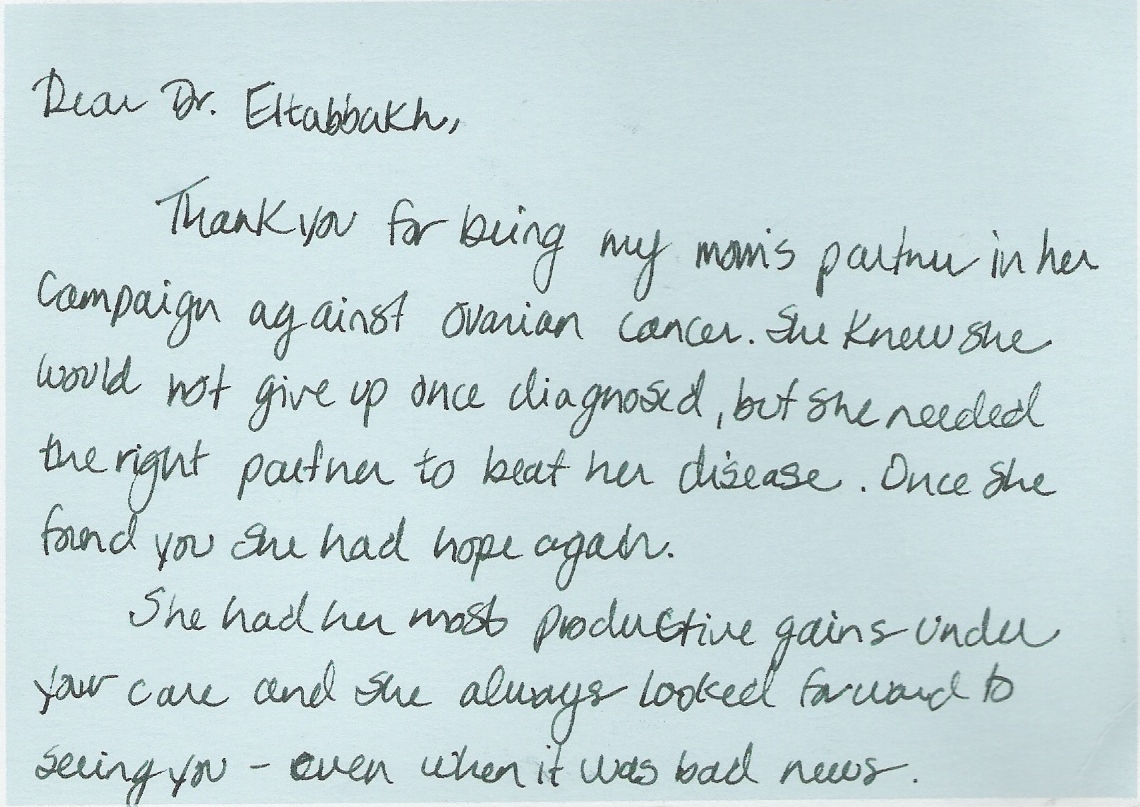 Dear Dr. Eltabbakh,
Thank you for being my mom's partner in her
campaign against ovarian cancer. She knew she
would not give up once diagnosed, but she needed
the right partner to beat her disease. Once she
found you she had hope again.
She had her most productive gains under
your care and she always looked forward to
seeing you - even when it was bad news.